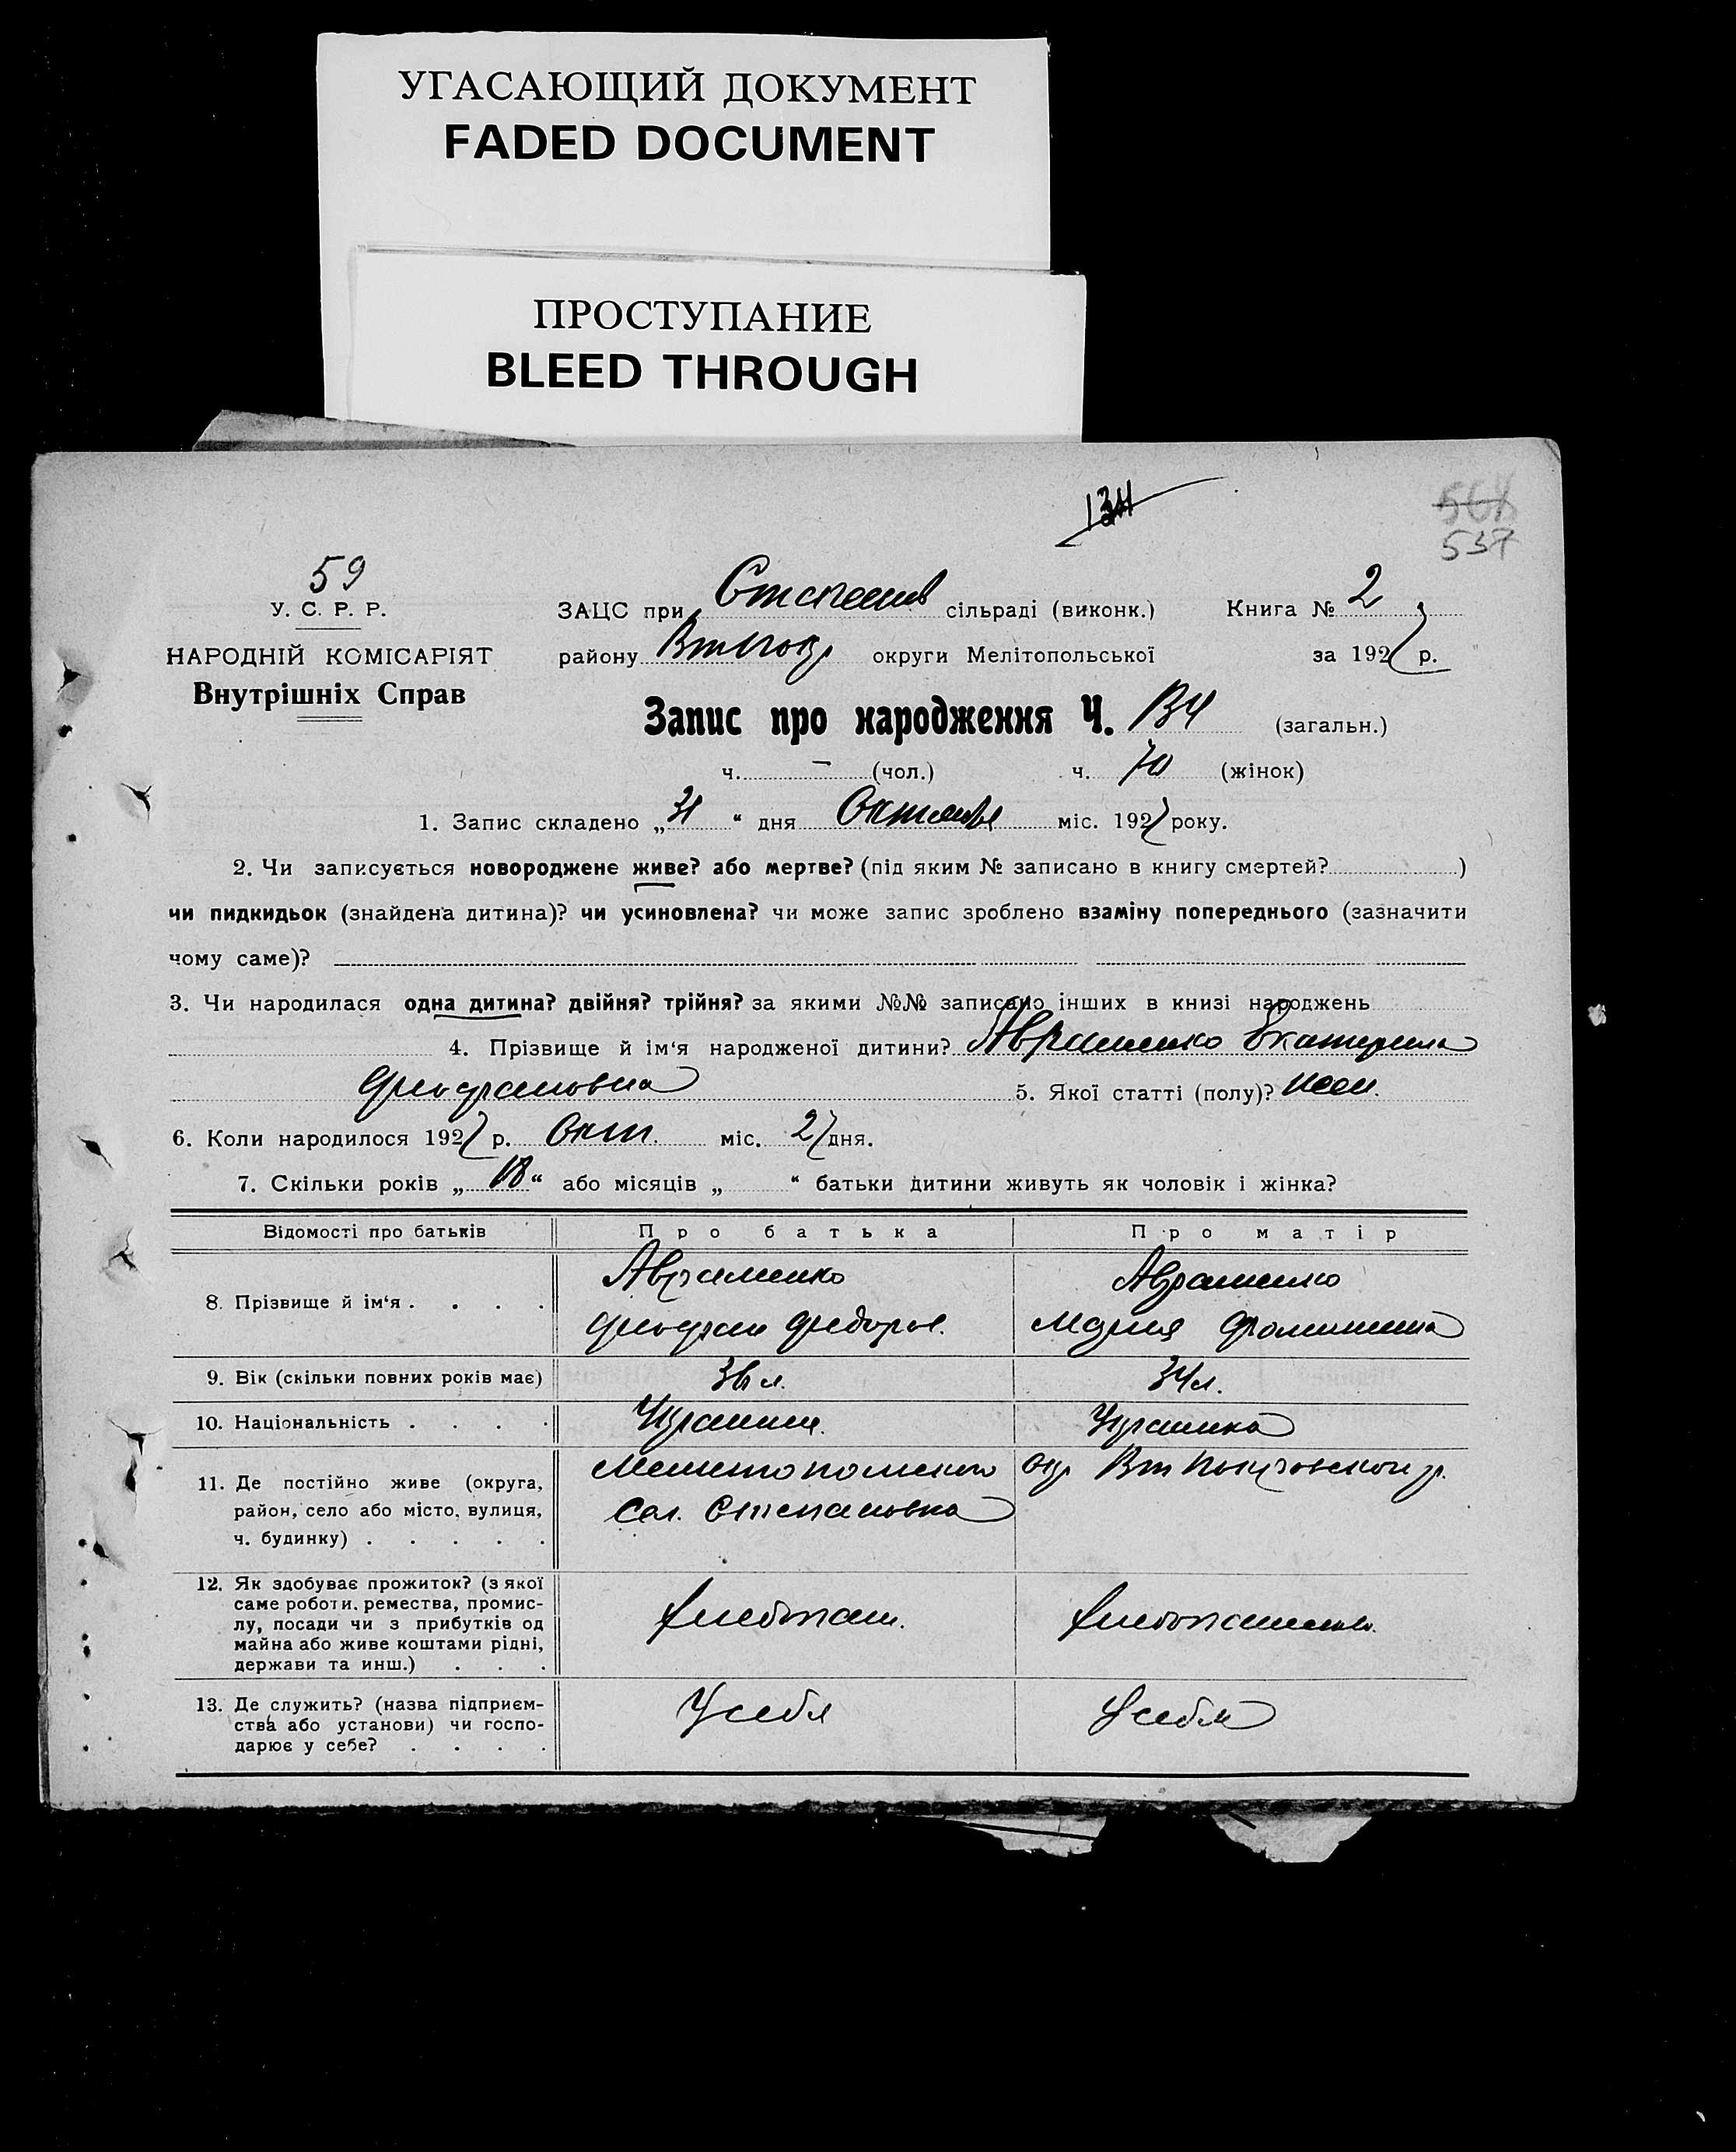 УГАСАЮЩИЙ ДОКУМЕНТ
FADED DOCUMENT
ПРОСТУПАНИЕ
BLEED THROUGH
537
59
У. С. Р. Р.
ЗАЦС при сільраді (виконк.) Книга № 2
НАРОДНІЙ КОМІСАРІЯТ
району округи Мелітопольської за 1927 р.
Внутрішніх Справ
Запис про народження Ч. (загальн.)
ч. – (чол.) ч. 70 (жінок)
1. Запис складено „31“ дня Октября міс. 1927 року.
2. Чи записується новороджене живе? або мертве? (під яким № записано в книгу смертей? )
чи пидкидьок (знайдена дитина)? чи усиновлена? чи може запис зроблено взаміну попереднього (зазначити
чому саме)?
3. Чи народилася одна дитина? двійня? трійня? за якими №№ записано інших в книзі народжень
4. Прізвище й ім‘я народженої дитини? Авраменко Екатерина
5. Якої статті (полу)? жен.
6. Коли народилося 1927 р. Окт. міс. 27 дня.
7. Скільки років „18“ або місяців „ “ батьки дитини живуть як чоловік і жінка?
Відомості про батьків Про батька Про матір
8. Прізвище й ім‘я . . . . Авраменко Авраменко
Федоров. Мария
9. Вік (скільки повних років має) 36 л. 34 л.
10. Національність . . . . Украинец. Украинка
11. Де постійно живе (округа, район, село або місто, вулиця, ч. будинку) . . . . . Мелитопольского окр Вт Покровского р.
Сел. Степановка
12. Як здобуває прожиток? (з якої
саме роботи, ремества, промис-
лу, посади чи з прибутків од
майна або живе коштами рідні,
держави та инш.) . . . Хлебопаш.
13. Де служить? (назва підприєм-
ства або установи) чи госпо-
дарює у себе? . . . . У себя У себя